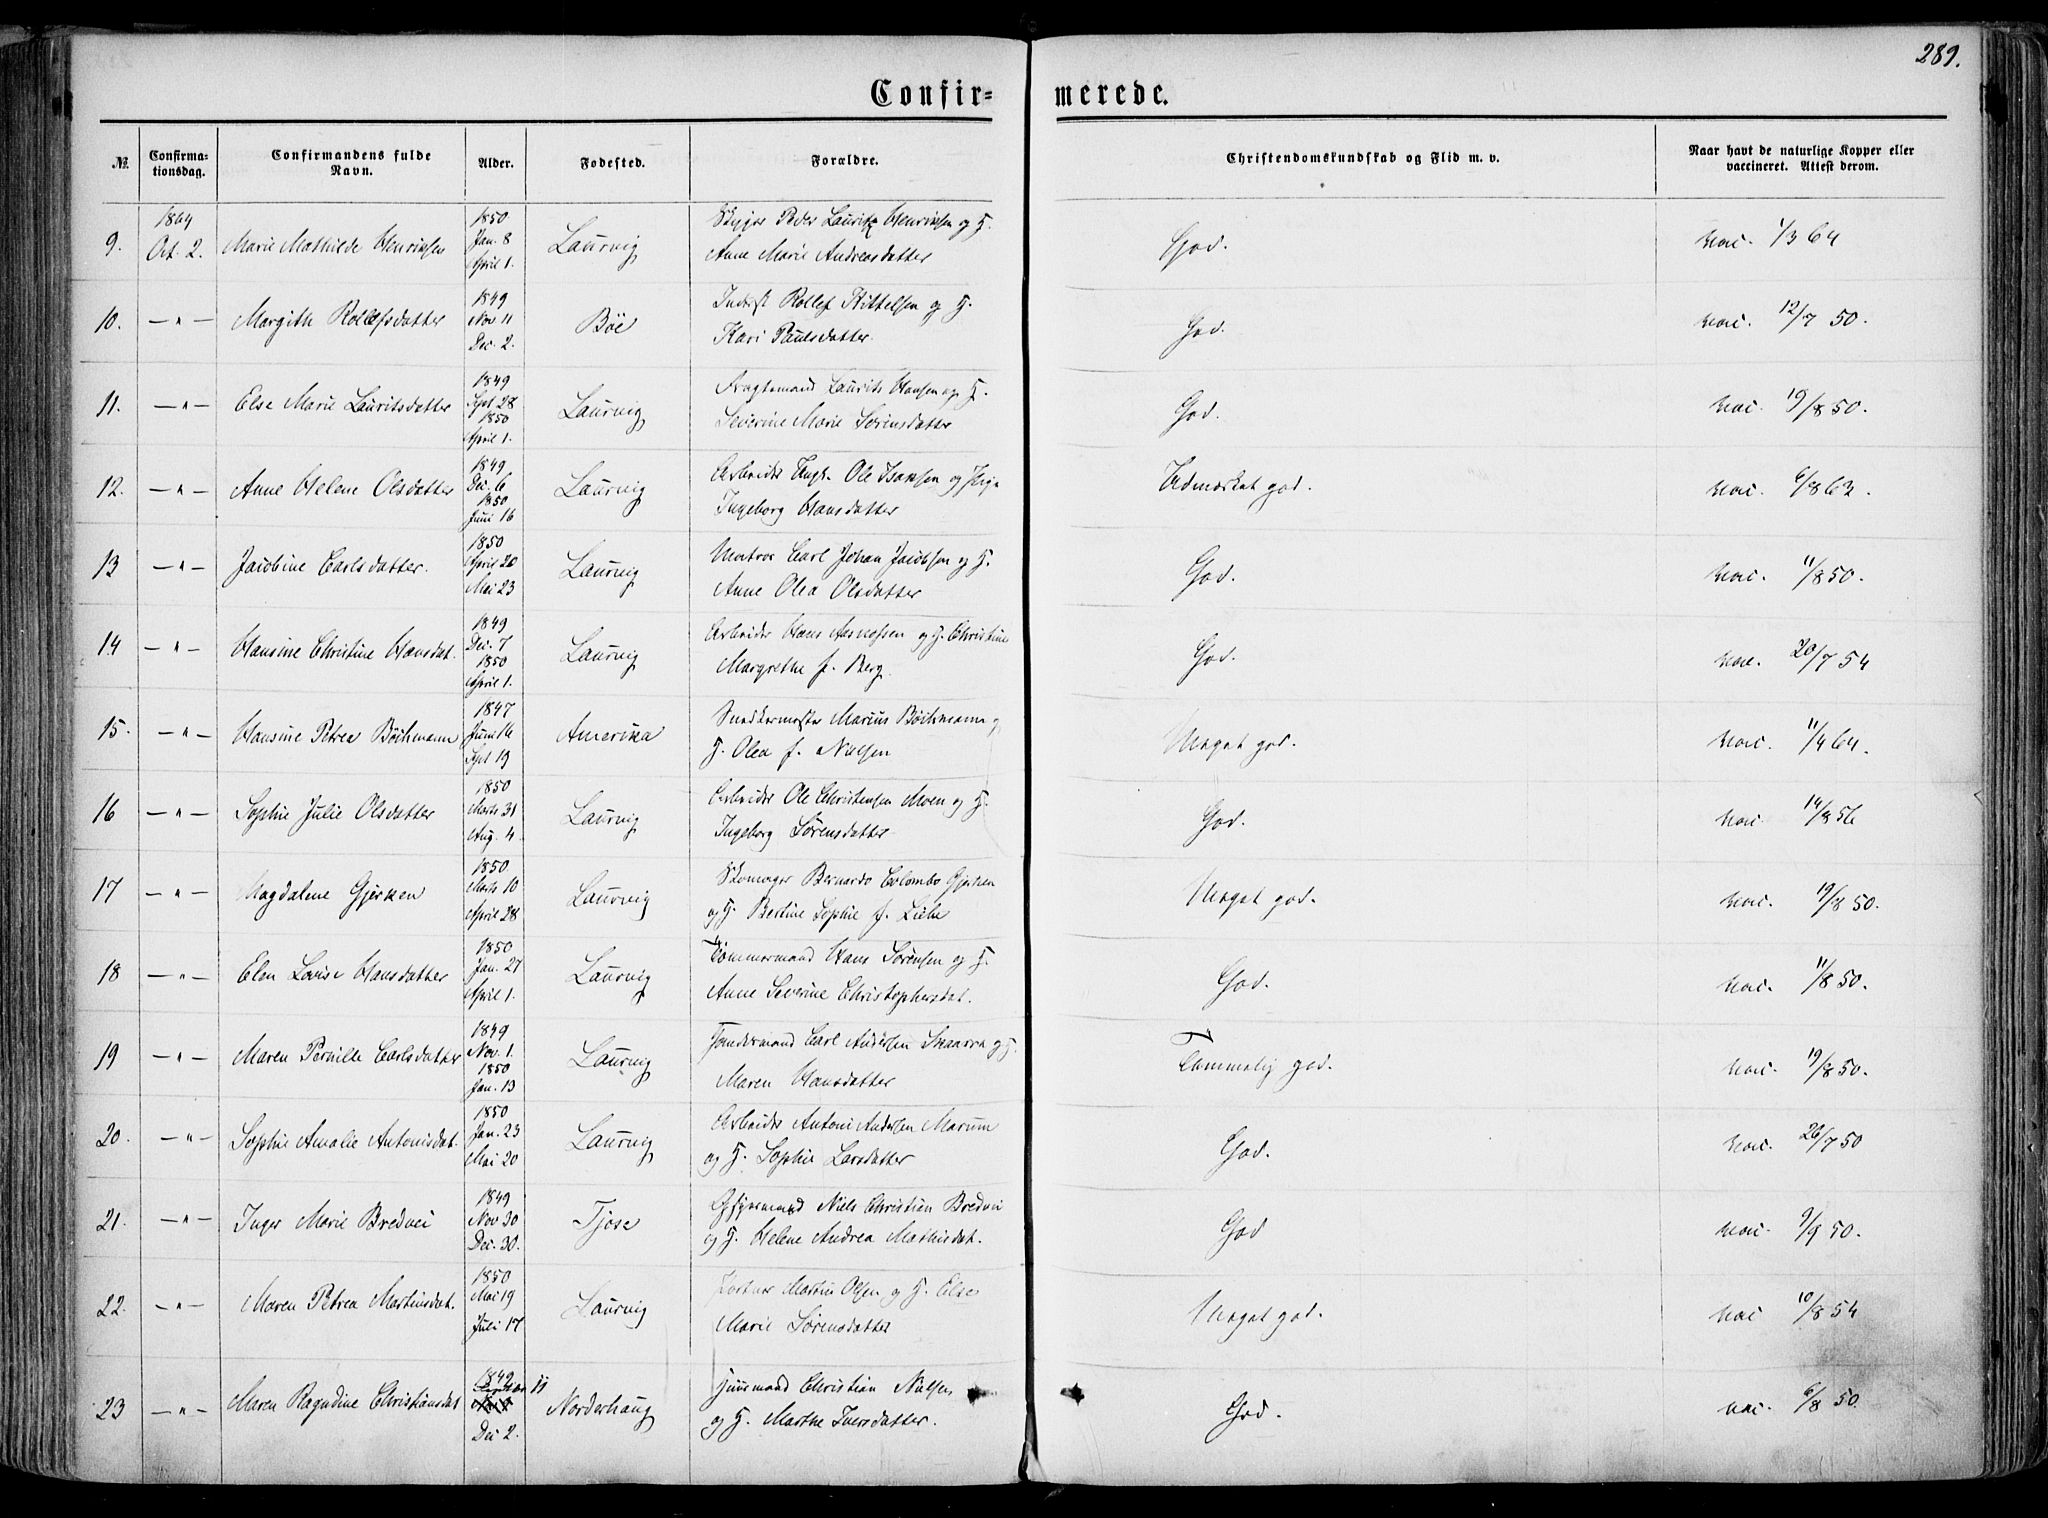 289.
Confirmerede.
№. Confirmationsdag. Confirmandens fulde Navn. Alder. Fødested. Forældre. Christendomskundskab og Flid m. v. Naar havt de naturlige Kopper eller vaccineret. Attest derom.
1864 1850 Peder Lauritz Henriksen og H.
9. Oct. 2. Marie Mathilde Henriksen Jan. 8 Laurvig God. vac. 1/3 64
April 1. Anne Marie Andreasdatter
1849 Inderst Rollef Kittelsen og H.
10. — " — Margith Rollefsdatter Nov 11 Böe God. vac. 12/7 50.
Dec. 2. Kari Paulsdatter
1849 Fragtemand Laurits Hansen og H.
11. — " — Else Marie Lauritsdatter Sept 28 Laurvig God. vac. 19/8 50.
1850 Severine Marie Sörensdatter
April 1.
1849 Arbeider Ungk. Ole Isaksen og Pige
12. — " — Anne Helene Olsdatter Dec. 6 Laurvig Udmærket god. vac. 6/8 63.
1850 Ingeborg Hansdatter
Juni 16
1850 Matros Carl Johan Jacobsen og H.
13 — " — Jacobine Carlsdatter. April 20 Laurvig God. vac. 11/8 50.
Mai 23 Anne Olea Olsdatter
1849 Arbeider Hans og H. Christine
14 — " — Hansine Christine Hansdat. Dec. 7 Laurvig God. vac. 20/7 54
1850 Margrethe f. Berg
April 1.
1847 Snedkermester Marius Böchmann og
15. — " — Hansine Petrea Böchmann Juni 14 Amerika Meget god. vac. 11/4 64.
Sept 19 H. Olea f. Nielsen
1850 Arbeider Ole Christensen Moen og H.
16 — " — Sophie Julie Olsdatter Marts 31 Laurvig God. vac. 14/8 56
Aug. 4. Ingeborg Sörensdatter
1850 Skomager Bernardo Colombo Gjerken
17 — " — Magdalene Gjerken Marts 10 Laurvig Meget god. vac. 19/8 50.
April 28 og H. Bertine Sophie f. Liebe
1850 Tömmermand Hans Sörensen og H.
18 — " — Elen Lovise Hansdatter Jan. 27 Laurvig God. vac. 11/8 50.
April 1. Anne Severine Christophersdat.
1849 Carl Andersen Skaarra og H.
19 — " — Maren Pernille Carlsdatter Nov. 1. Laurvig Temmelig god. vac. 19/8 50.
1850 Maren Hansdatter
Jan. 13
1850 Arbeider Antoni Andersen Marum
20. — " — Sophie Amalie Antonisdat. Jan. 23 Laurvig God. vac. 26/7 50
Mai 20 og H. Sophie Larsdatter
1849 Niels Christian Bredvei
21. — " — Inger Marie Bredvei Nov 30 Tjose God vac. 9/9 50.
Dec. 30. og H. Helene Andrea Mathisdat.
1850 Martin Olsen og H. Else
22. — " — Maren Petrea Martinsdat. Mai 19 Laurvig Meget god. vac 10/8 54
Juli 17 Marie Sörensdatter
1849 Christian Nielsen
23 — " — Maren Ragndine Christiansdat 11 Norderhaug God. vac. 6/8 50.
Dec 2. og H. Marthe Iversdatter.